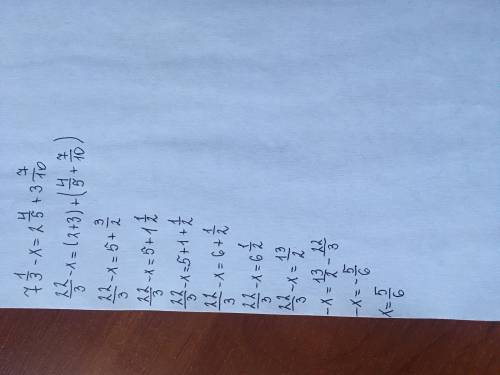 7 1/3 - x = 2 4/5 + 3 7/10
22/3 - x = (2+3) + (4/5 + 7/10)
22/3 - x = 5 + 3/2
22/3 - x = 5 + 1 1/2
22/3 - x = 5 + 1 + 1/2
22/3 - x = 6 + 1/2
22/3 - x = 6 1/2
22/3 - x = 13/2
-x = 13/2 - 22/3
-x = -5/6
x = 5/6